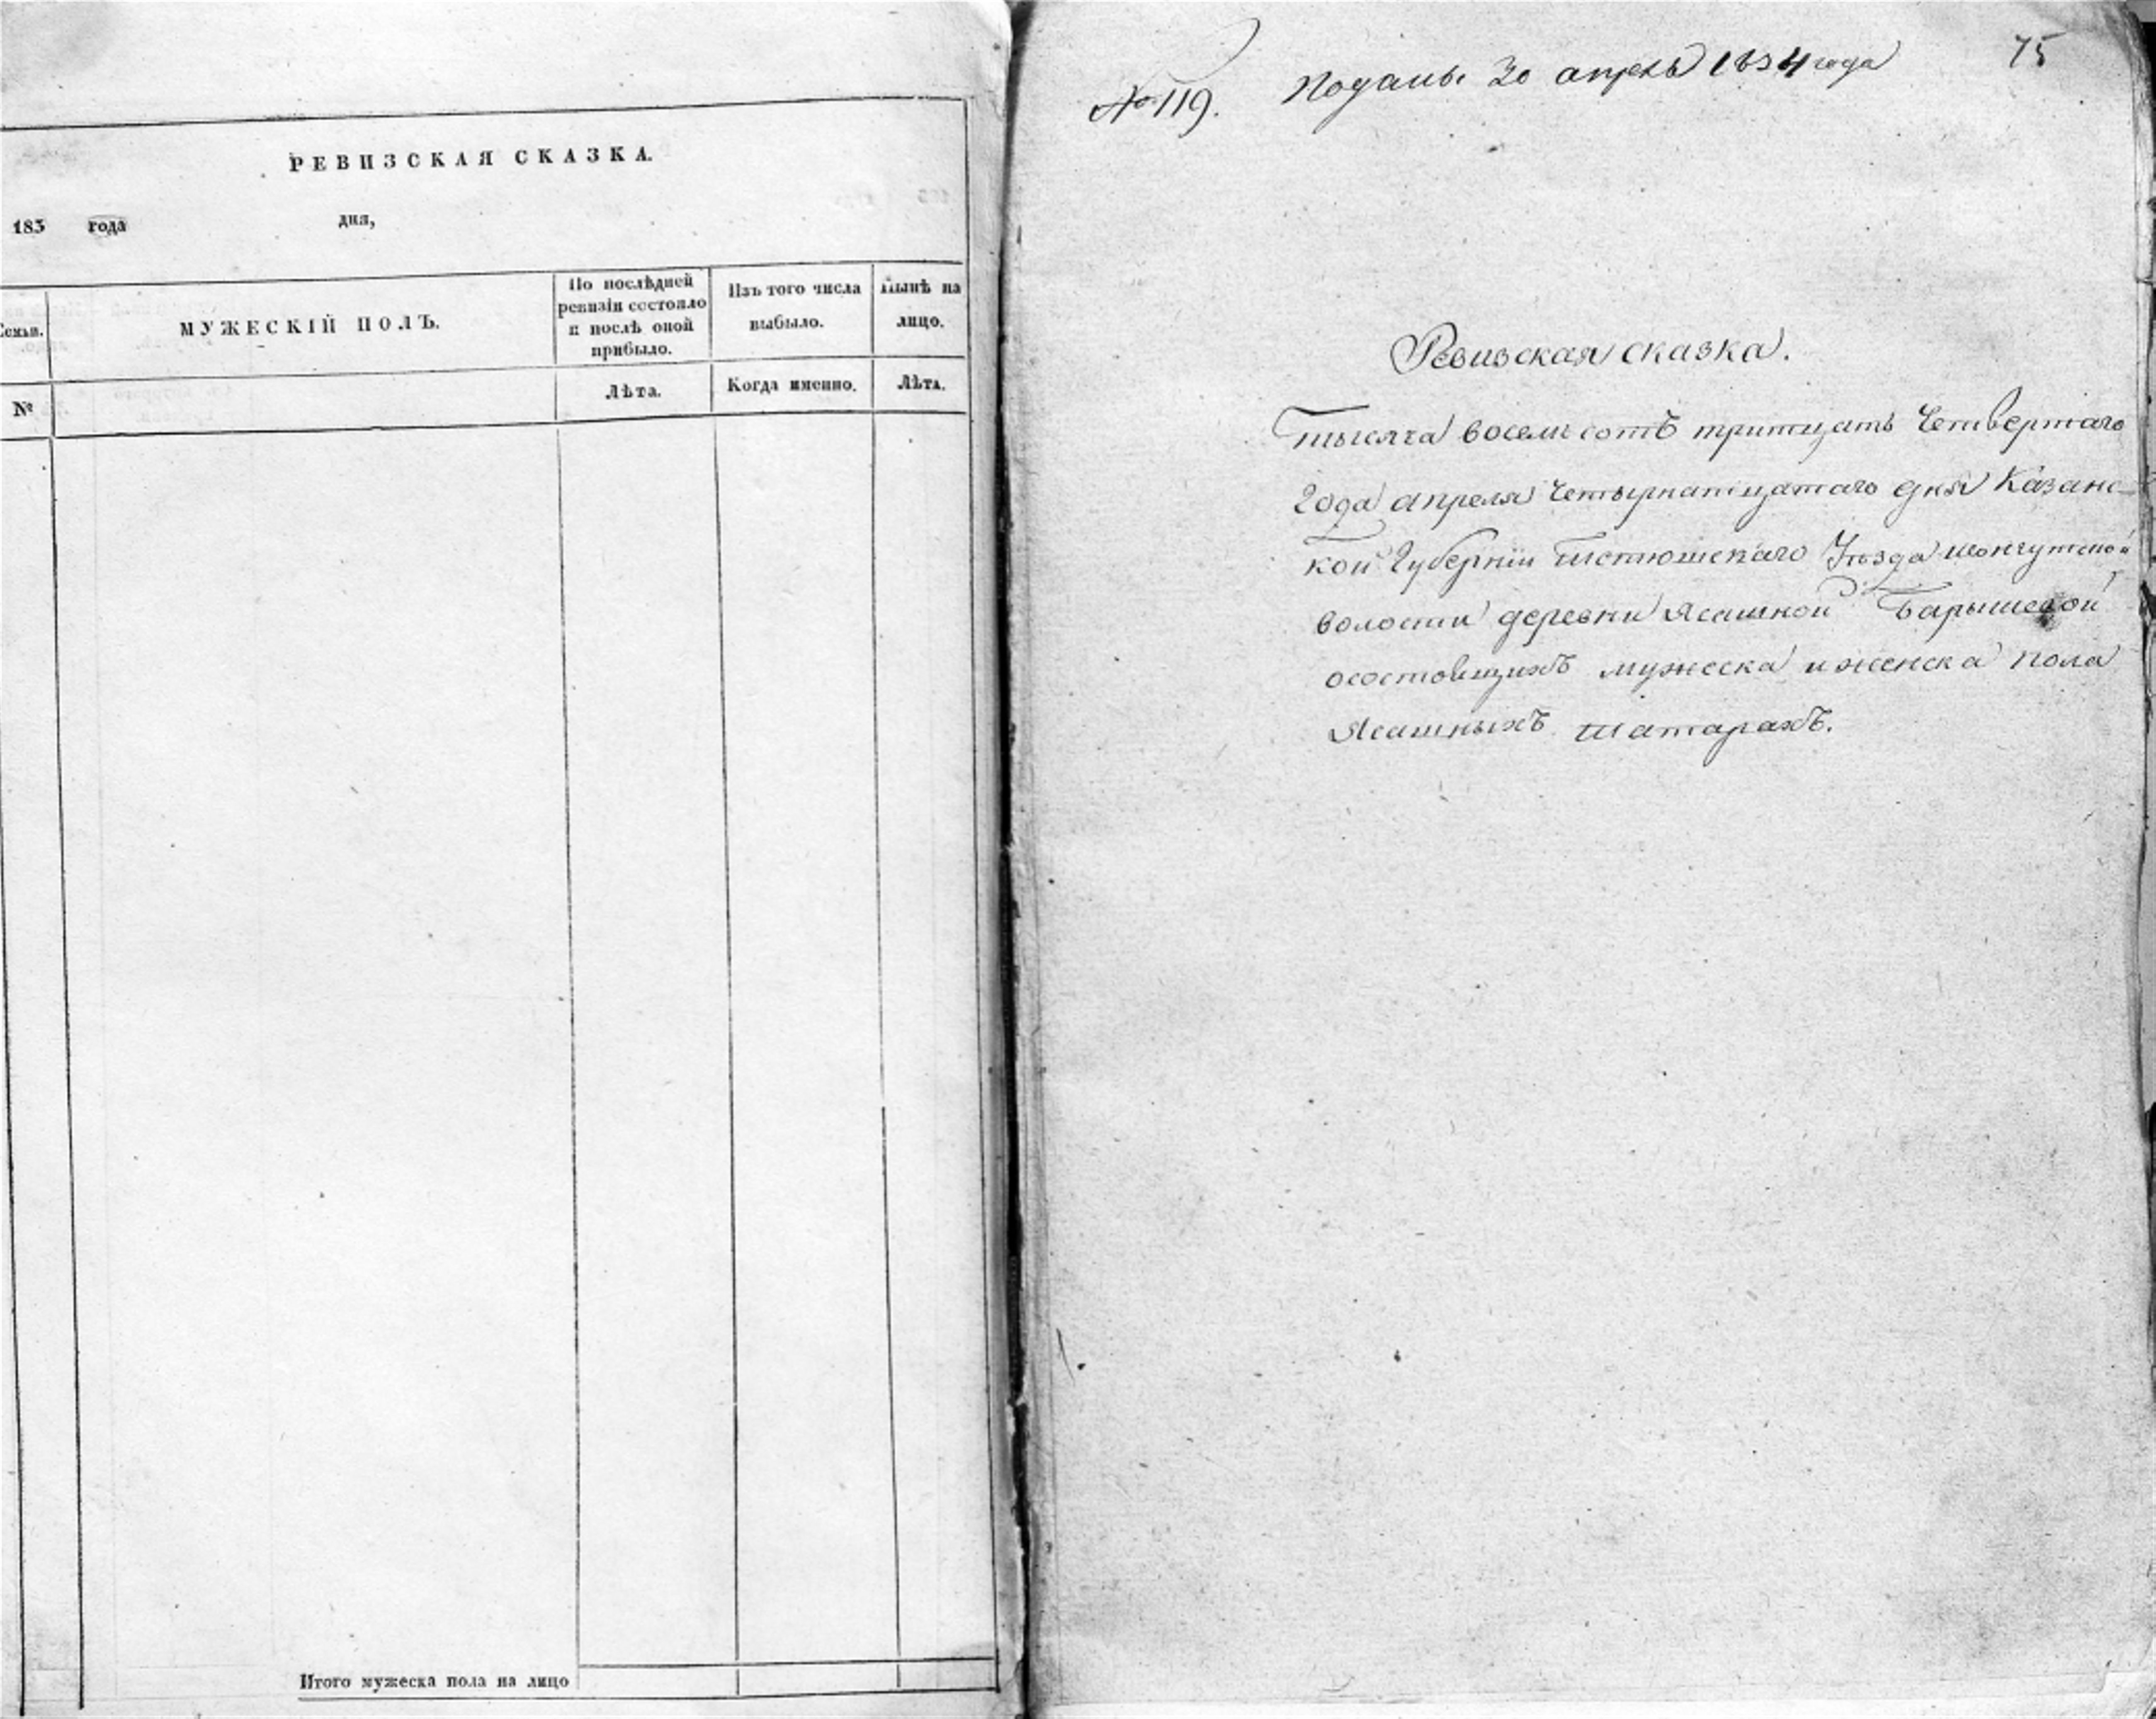 РЕВИЗСКАЯ СКАЗКА.
183 года дня,
Семьи.
МУЖЕСКІЙ ПОЛЪ.
По послѣдней
ревизіи состояло
и послѣ оной
прибыло.
Изъ того числа
выбыло.
Нынѣ на
лицо.
№
Лѣта.
Когда именно.
Лѣта.
Итого мужеска пола на лицо
75
№ 119. Поданы 30 апрель 1834 года
Ревизская сказка.
Тысяча восемь сотъ тритцать четвертаго
года апреля четырнатцатаго дня Казанс-
кой губерніи Уѣзда
волости деревни Ясашной Барышевой
осостоящихъ мужеска и женска пола
Ясашныхъ татарахъ.